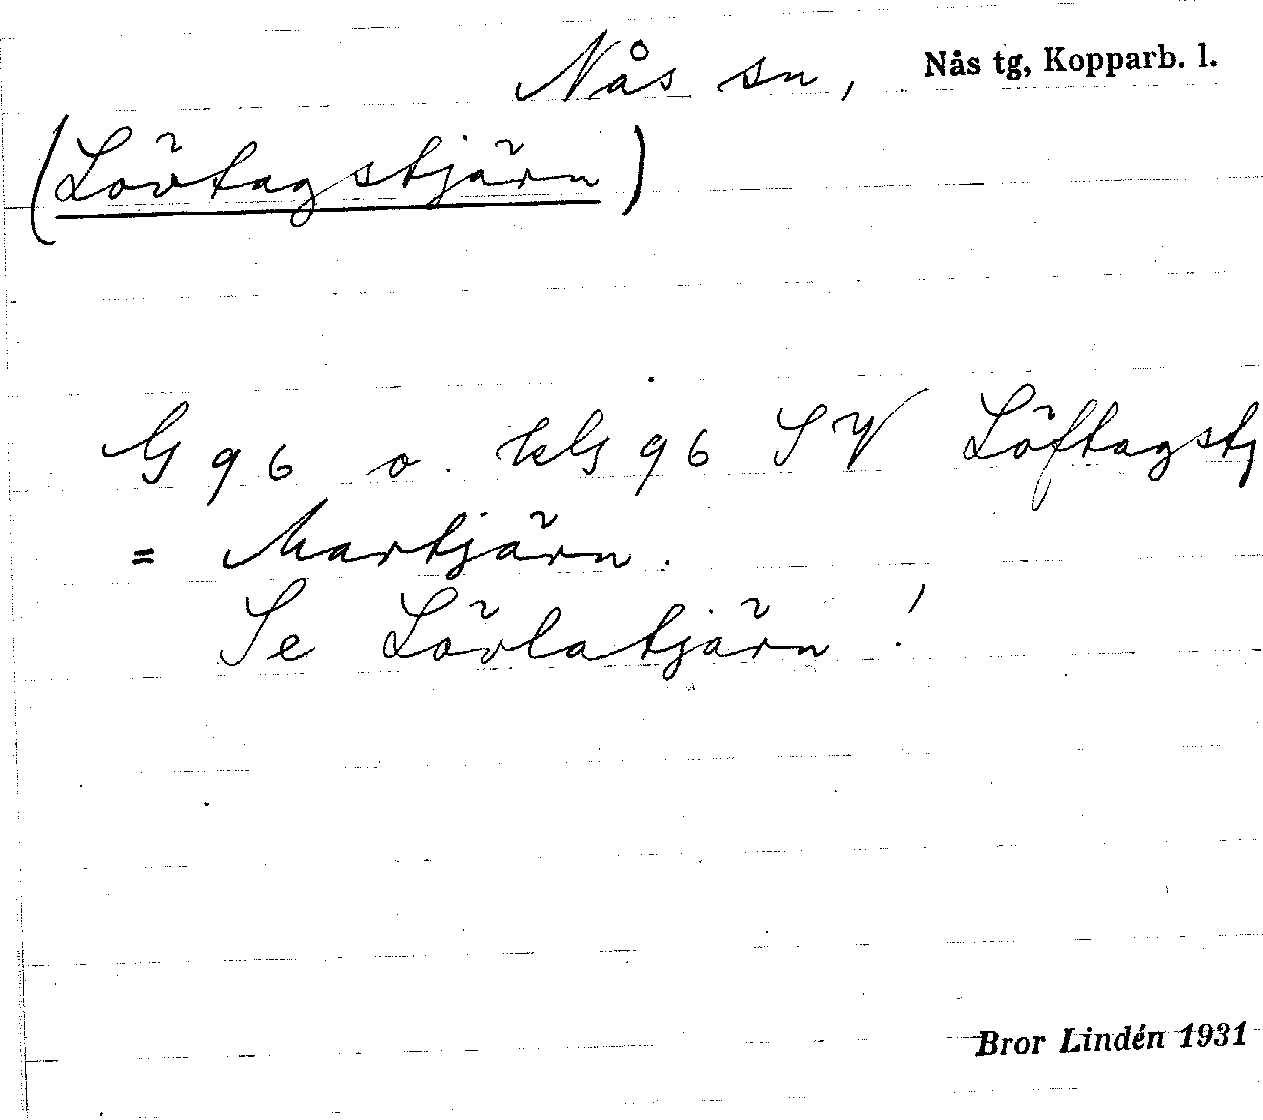 Nås sn, Nås tg, Kopparb. l.
(Lövtagstjärn)
G 96 o. kG 96 SV Löftagstj
= Martjärn.
Se Lövlatjärn!
Bror Lindén 1931